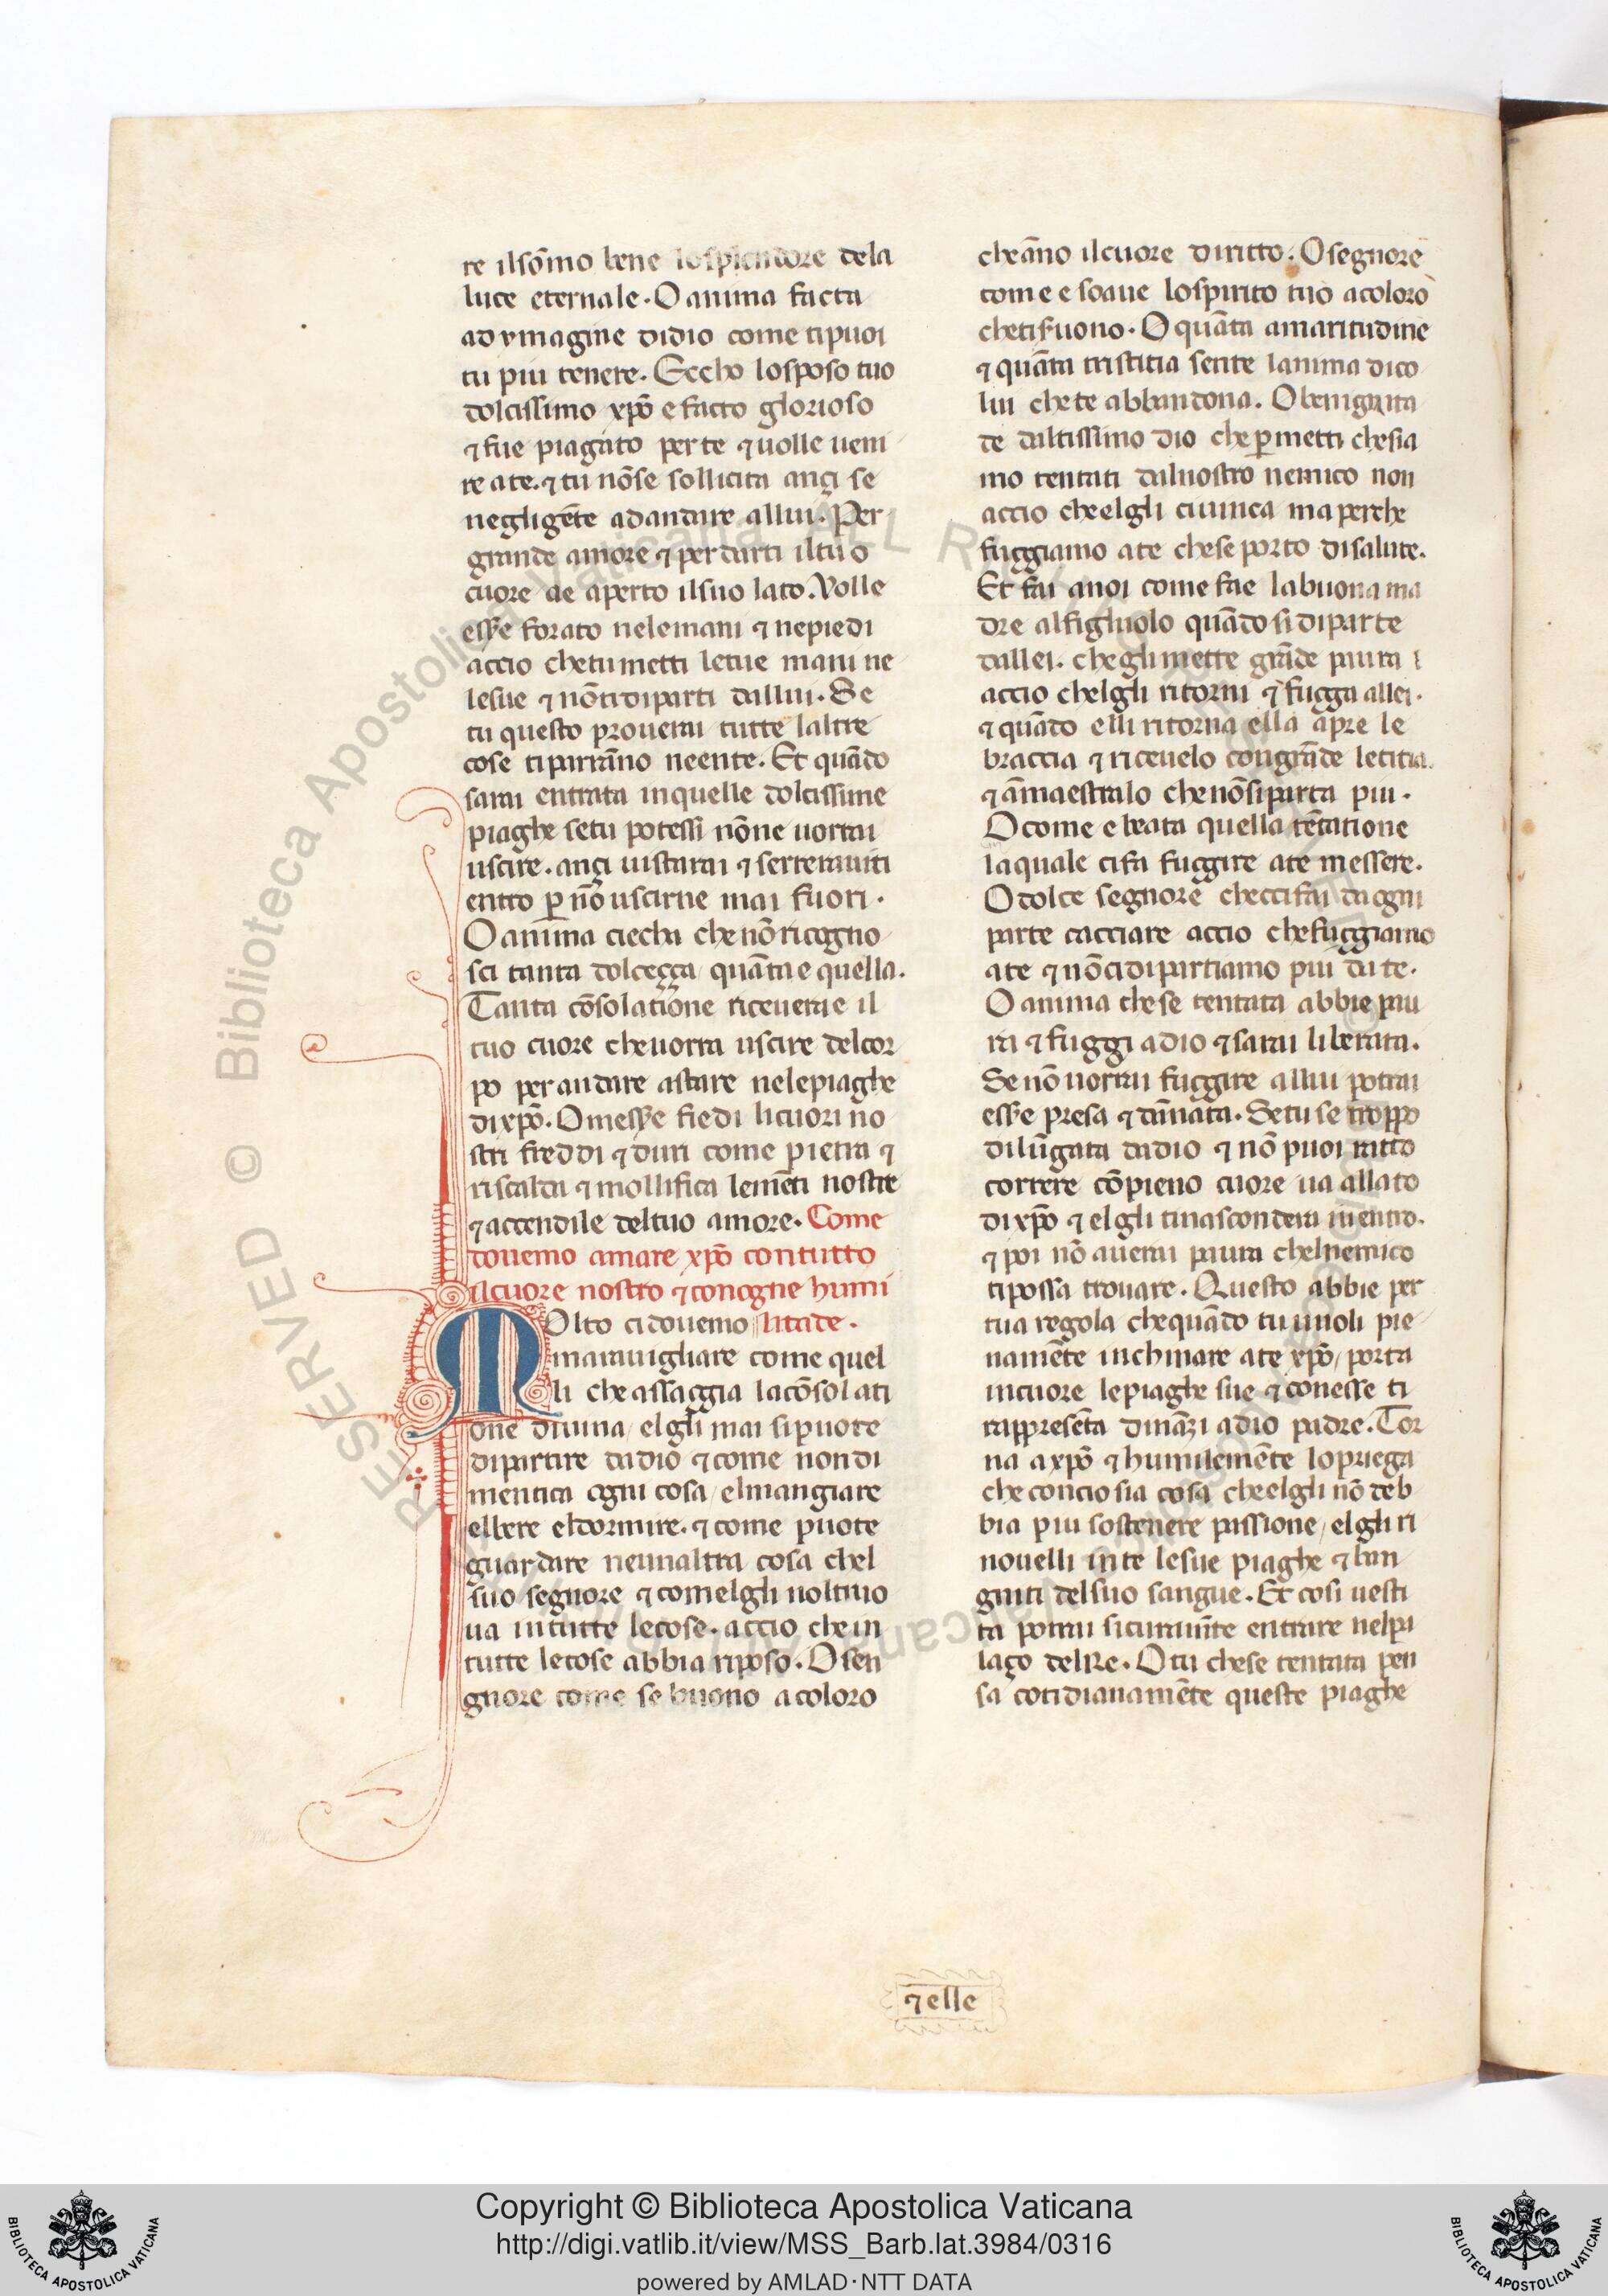 re ilsōmo bene losplendore dela
luce eternale. O anima facta
ad ymagine didio come tipuoi
tu piu tenere. Eccho losposo tuo
dolcissimo xp̄o e facto glorioso
⁊ fue piagato per te ⁊ uolle ueni
re ate. ⁊ tu nōse sollicita ançi se
negligēte ad andare allui. Per
grande amore ⁊ per darti il tuo
cuore ae aperto ilsuo lato. Volle
esse forato nelemani ⁊ nepiedi
accio chetu metti letue mani ne
lesue ⁊ nōti diparti dallui. Se
tu questo prouerai tutte laltre
cose ti parrāno neente. Et quādo
sarai entrata inquelle dolcissime
piaghe setu potessi nōne uorrai
uscire. ançi uistarai ⁊ serreraiuiti
entro ꝑ nō uscirne mai fuori.
O anima ciecha che nō ricogno
sci tanta dolceçça / quāta e quella.
Tanta cōsolatione riceuerae il
tuo cuore che uorra uscire delcor
po per andare astare nelepiaghe
dixp̄o. O messe fiedi licuori no
stri freddi ⁊ duri come pietra ⁊
riscalda ⁊ mollifica lemēti nostre
⁊ accendile deltuo amore. Come
douemo amare xp̄o contutto
ilcuore nostro ⁊ conogne humi
litade.
MOlto ci douemo
marauigliare come quel
li che assaggia lacōsolati
one diuina / elgli mai si puote
dipartire dadio ⁊ come non di
mentica ogni cosa / elmangiare
elbere eldormire. ⁊ come puote
guardare neunaltra cosa chel
suo segnore ⁊ comelgli noltruo
ua in tutte lecose. accio che in
tutte lecose abbia riposo. O sen
gnore come se buono acoloro
cheāno ilcuore diritto. O segnore
come e soaue lospirito tuo acoloro
cheti fuono. O quāta amaritudine
⁊ quāta tristitia sente lanima dico
lui che te abbandona. O benignita
de daltissimo dio che ꝑmetti chesia
mo tentati dalnostro nemico non
accio cheelgli ciuinca ma perche
fuggiamo ate chese porto disalute.
Et fai anoi come fae labuona ma
dre alfigliuolo quādo si diparte
dallei. che gli mette grāde paura
accio chelgli ritorni ⁊ fugga allei.
⁊ quādo elli ritorna ella apre le
braccia ⁊ riceuelo congrāde letitia.
⁊ āmaestralo che nōsi parta piu.
O come e beata quella tētatione
laquale cifa fuggire ate messere.
O dolce segnore checcifai daogni
parte cacciare accio chefuggiamo
ate ⁊ nōcidipartiamo piu da te.
O anima chese tentata abbie pau
ra ⁊ fuggi adio ⁊ sarai liberata.
Se nō uorrai fuggire allui potrai
esse presa ⁊ dānata. Setu se troppo
dilūgata dadio ⁊ nō puoi ratto
correre cōpieno cuore ua allato
dixp̄o ⁊ elgli tinascondera inentro.
⁊ poi nō auerai paura chelnemico
tipossa trouare. Questo abbie per
tua regola chequādo tu uuoli pie
namēte inchinare ate xp̄o / porta
incuore lepiaghe sue ⁊ conesse ti
rappresēta dināzi adio padre. Tor
na axp̄o ⁊ humilemēte lopriega
che conciosia cosa cheelgli nō deb
bia piu sostenere passione / elgli ri
nouelli in te lesue piaghe ⁊ ban
gniti delsuo sangue. Et cosi uesti
ta potrai sicuramēte entrare nelpa
laço delRe. O tu chese tentata pen
sa cotidianamēte queste piaghe
⁊ elle
Copyright © Biblioteca Apostolica Vaticana
http://digi.vatlib.it/view/MSS_Barb.lat.3984/0316
powered by AMLAD · NTT DATA
BIBLIOTECA APOSTOLICA VATICANA
BIBLIOTECA APOSTOLICA VATICANA